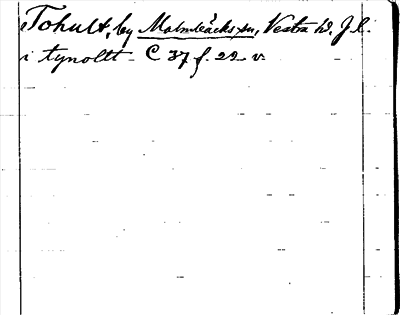 Tohult, by Malmbäcks sn, Vestra hd, J. l.
i tynoltt - C 37 f. 22 v.